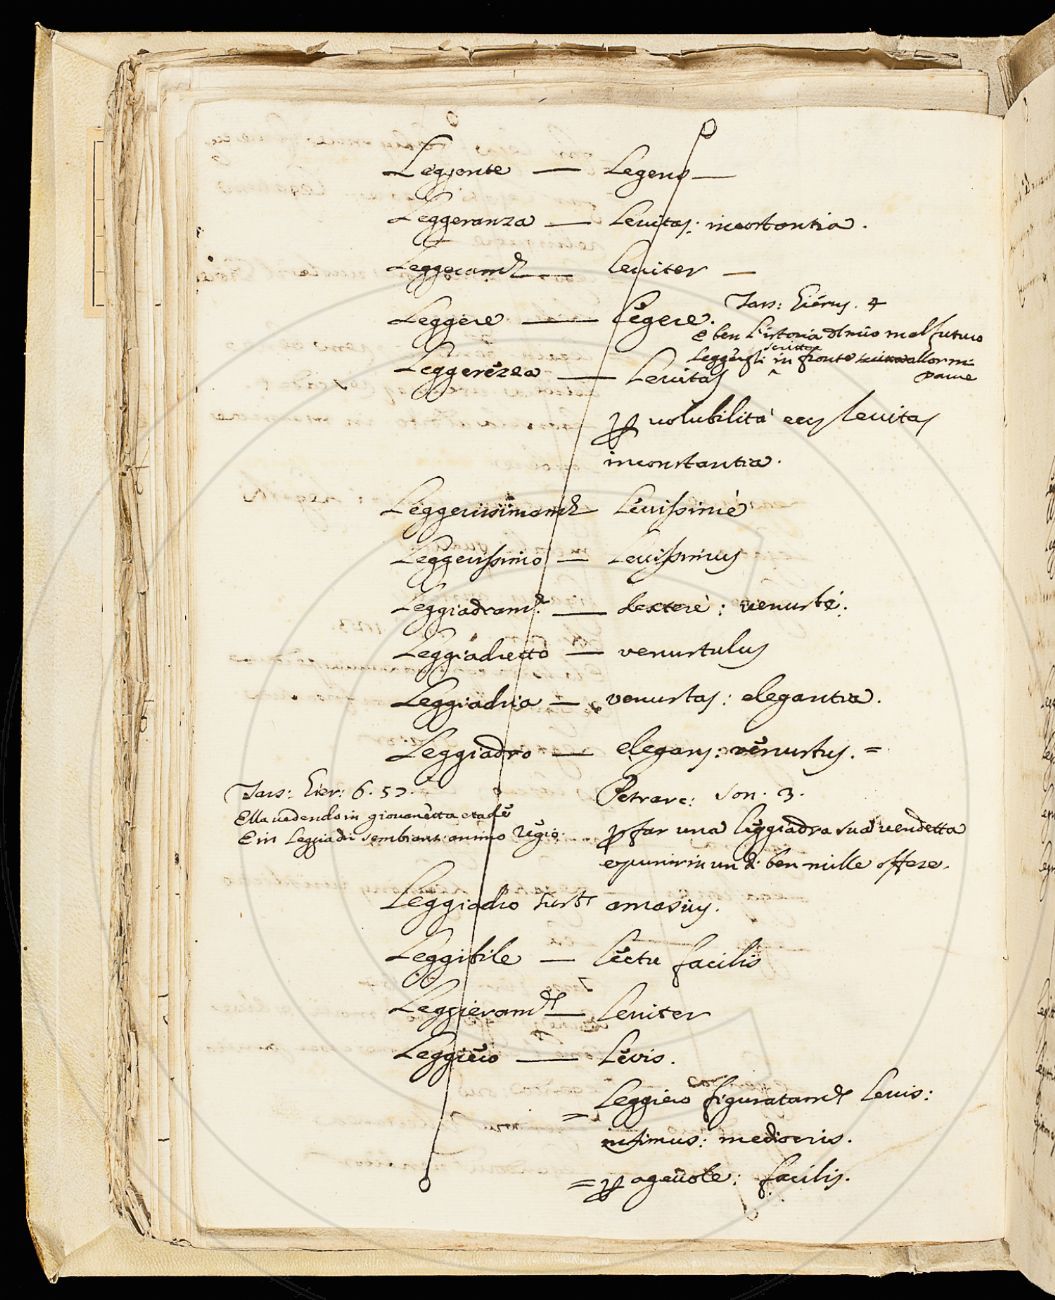 Leggente — Legens —
Leggeranza — Leuitas: inconstantia.
Leggeramte — leuiter —
Leggere — legere. Tass: Gierus. 4
E ben l'istoria del mio mal futuro
Leggerezza — Leuitas
scritta
Leggergli in fronte allor mi-
parue
p volubilità ecc leuitas
inconstantia.
Leggerissimamte Leuissimè
Leggerissimo — Leuissimus
Leggiadramte — dexterè: venustè.
Leggiadretto — venustulus
Leggiadria — venustas: elegantia.
Leggiadro — elegans: venustus. =
Tass: Gier: 6. 57.
Ella vedendo in giouanetta etade
E in leggiadri sembianti animo regio.
Petrarc: Son. 3.
p far una leggiadra sua vendetta
e punir in un dì ben mille offese.
Leggiadro sustt amasius.
Leggibile — lectu facilis
Leggieramte — Leuiter
Leggiero — Leuis.
= Leggiero figuratamte Leuis:
infimus: mediocris.
= p ageuole: facilis.